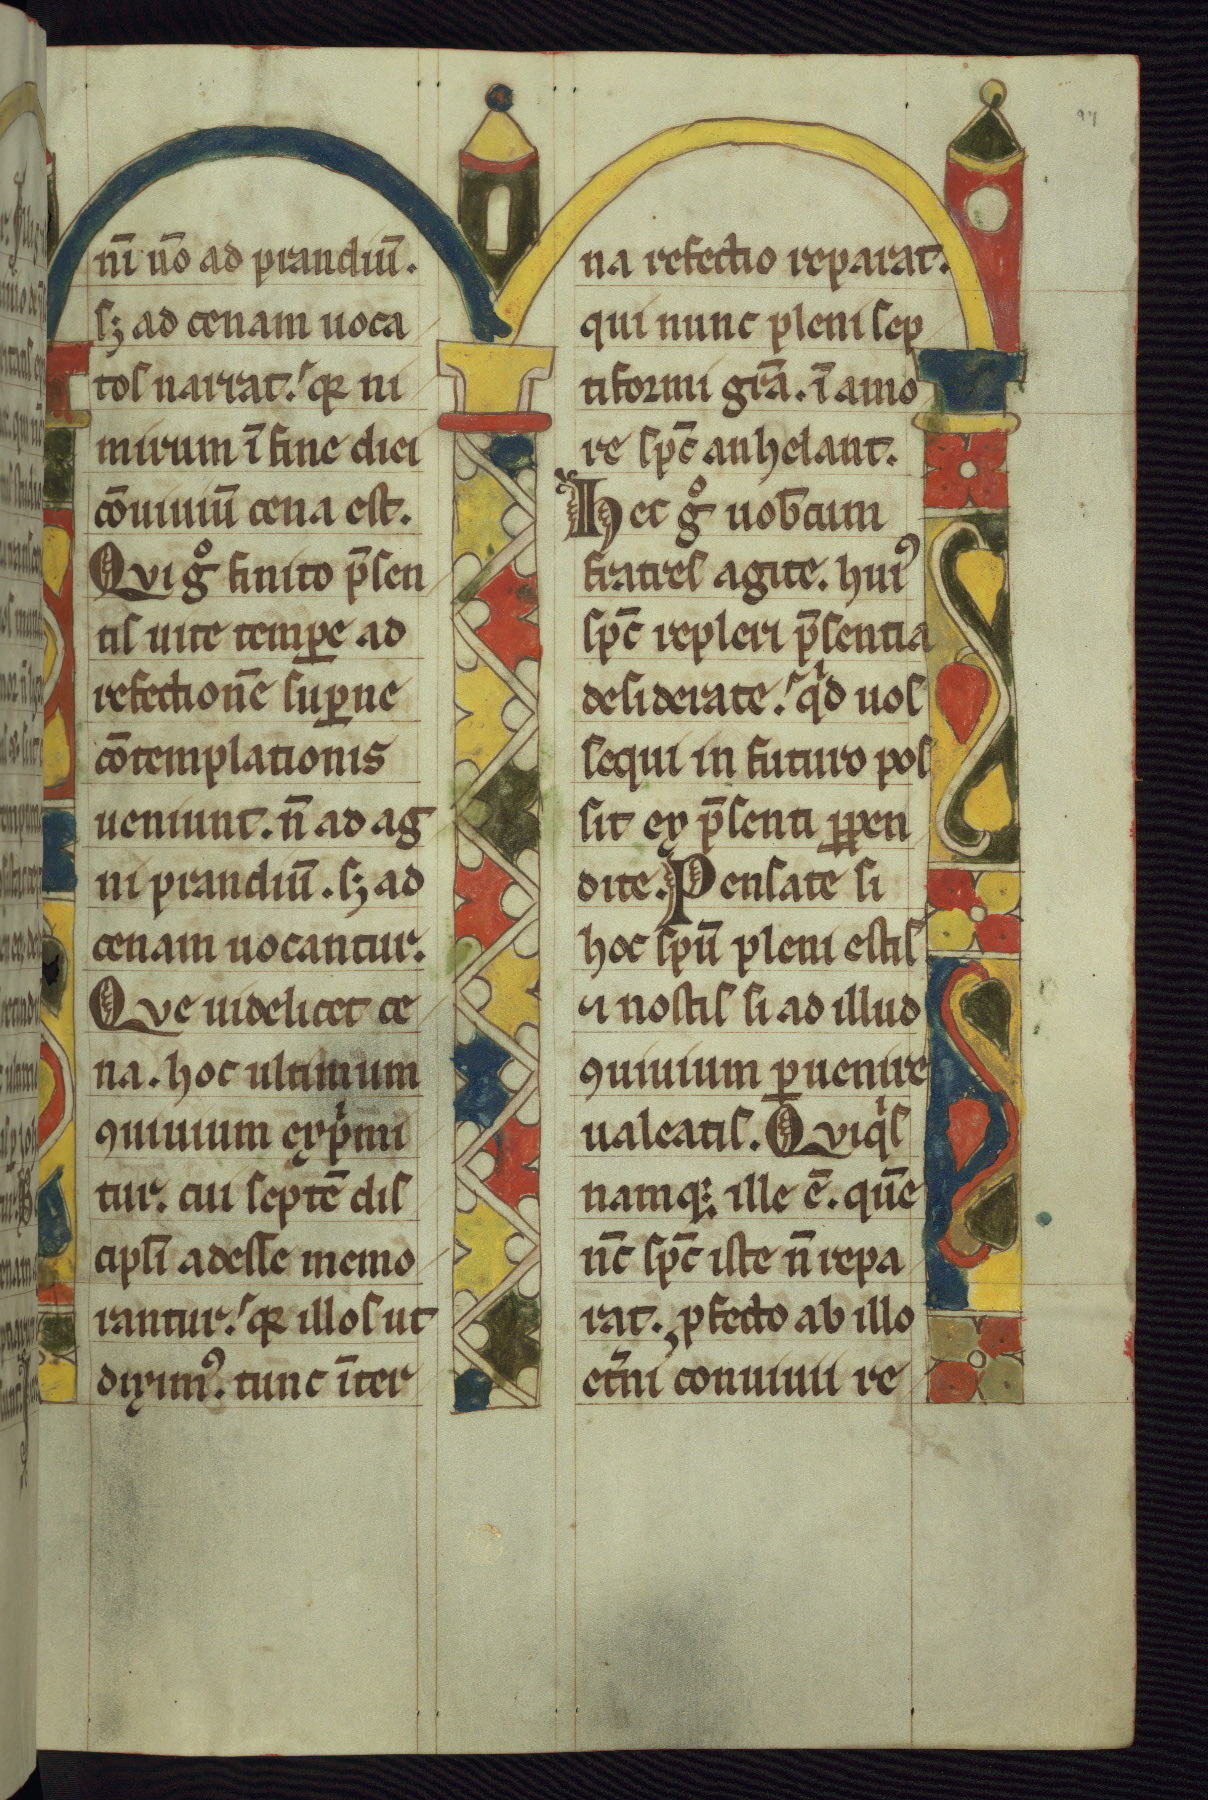 nı̄ ūo ad prandiū.
sꝫ ad cenam uoca
tos narrat. qꝛ ni
mirum ī fine diei
cōuiuiū cena est.
Qvi gͦ finito p̄sen
tis uite tempe ad
refectionē suꝑne
cōtemplationis
ueniunt. n̄ ad ag
ni prandiū. sꝫ ad
cenam uocantur.
Qve uidelicet ce
na. hoc ultimum
ꝯuiuium exp̍mi
tur. cui septē dis
cipli̅ adesse memo
rantur. qꝛ illos ut
diximꝰ. tunc īter
na refectio reparat.
qui nunc pleni sep
tiformi gr̄a. ī amo
re sp̄c anhelant.
Hec gͦ uob̄cum
fratres agite. huiꝰ
sp̄c repleri p̄sentia
desiderate. qͥd uos
sequi in futuro pos
sit ex p̄senti ꝑpen
dite. Pensate si
hoc spū pleni estis
⁊ nostis si ad illud
ꝯuiuium ꝑuenire
ualeatis. Qviqͥs
namqꝫ ille ē. quē
nc̄ sp̄c iste n̄ repa
rat. ꝓfecto ab illo
et̄ni conuiuii re
97